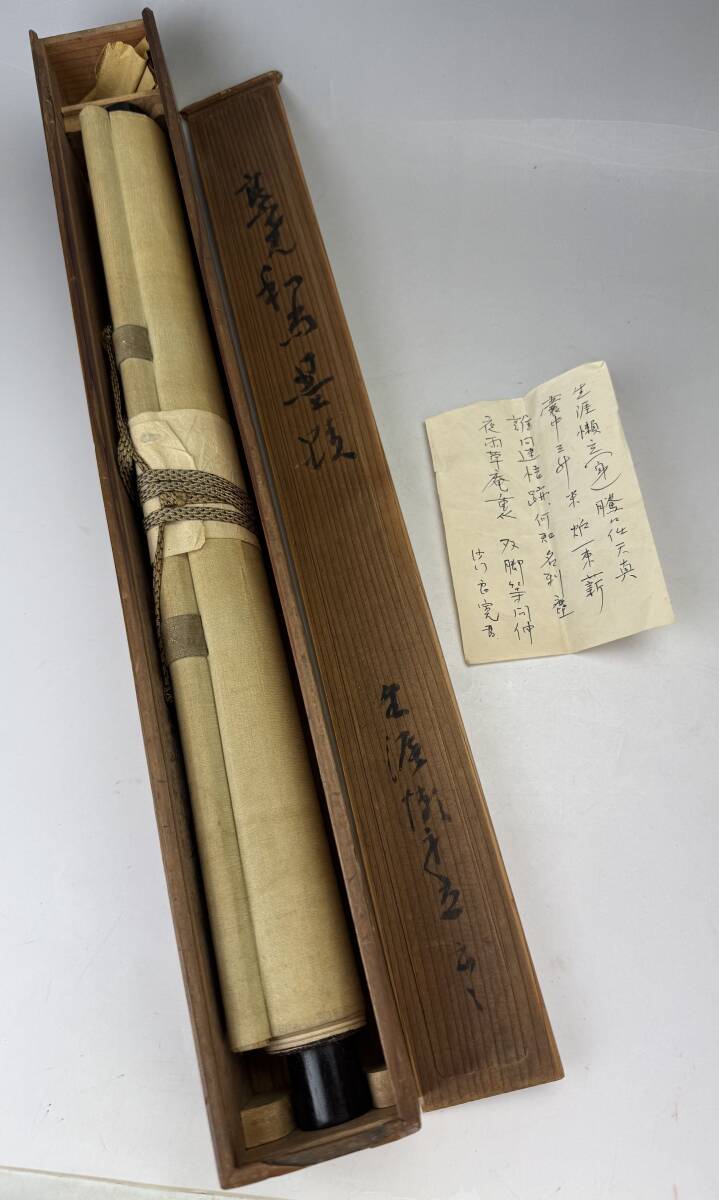 和尚墨蹟
生涯懶身立 云々
生涯懶立(身)騰々任天真
嚢中三升米 炉一束薪
誰问迷悟跡 何知名利塵
夜雨草庵裏 双脚等间伸
沙门良寛書